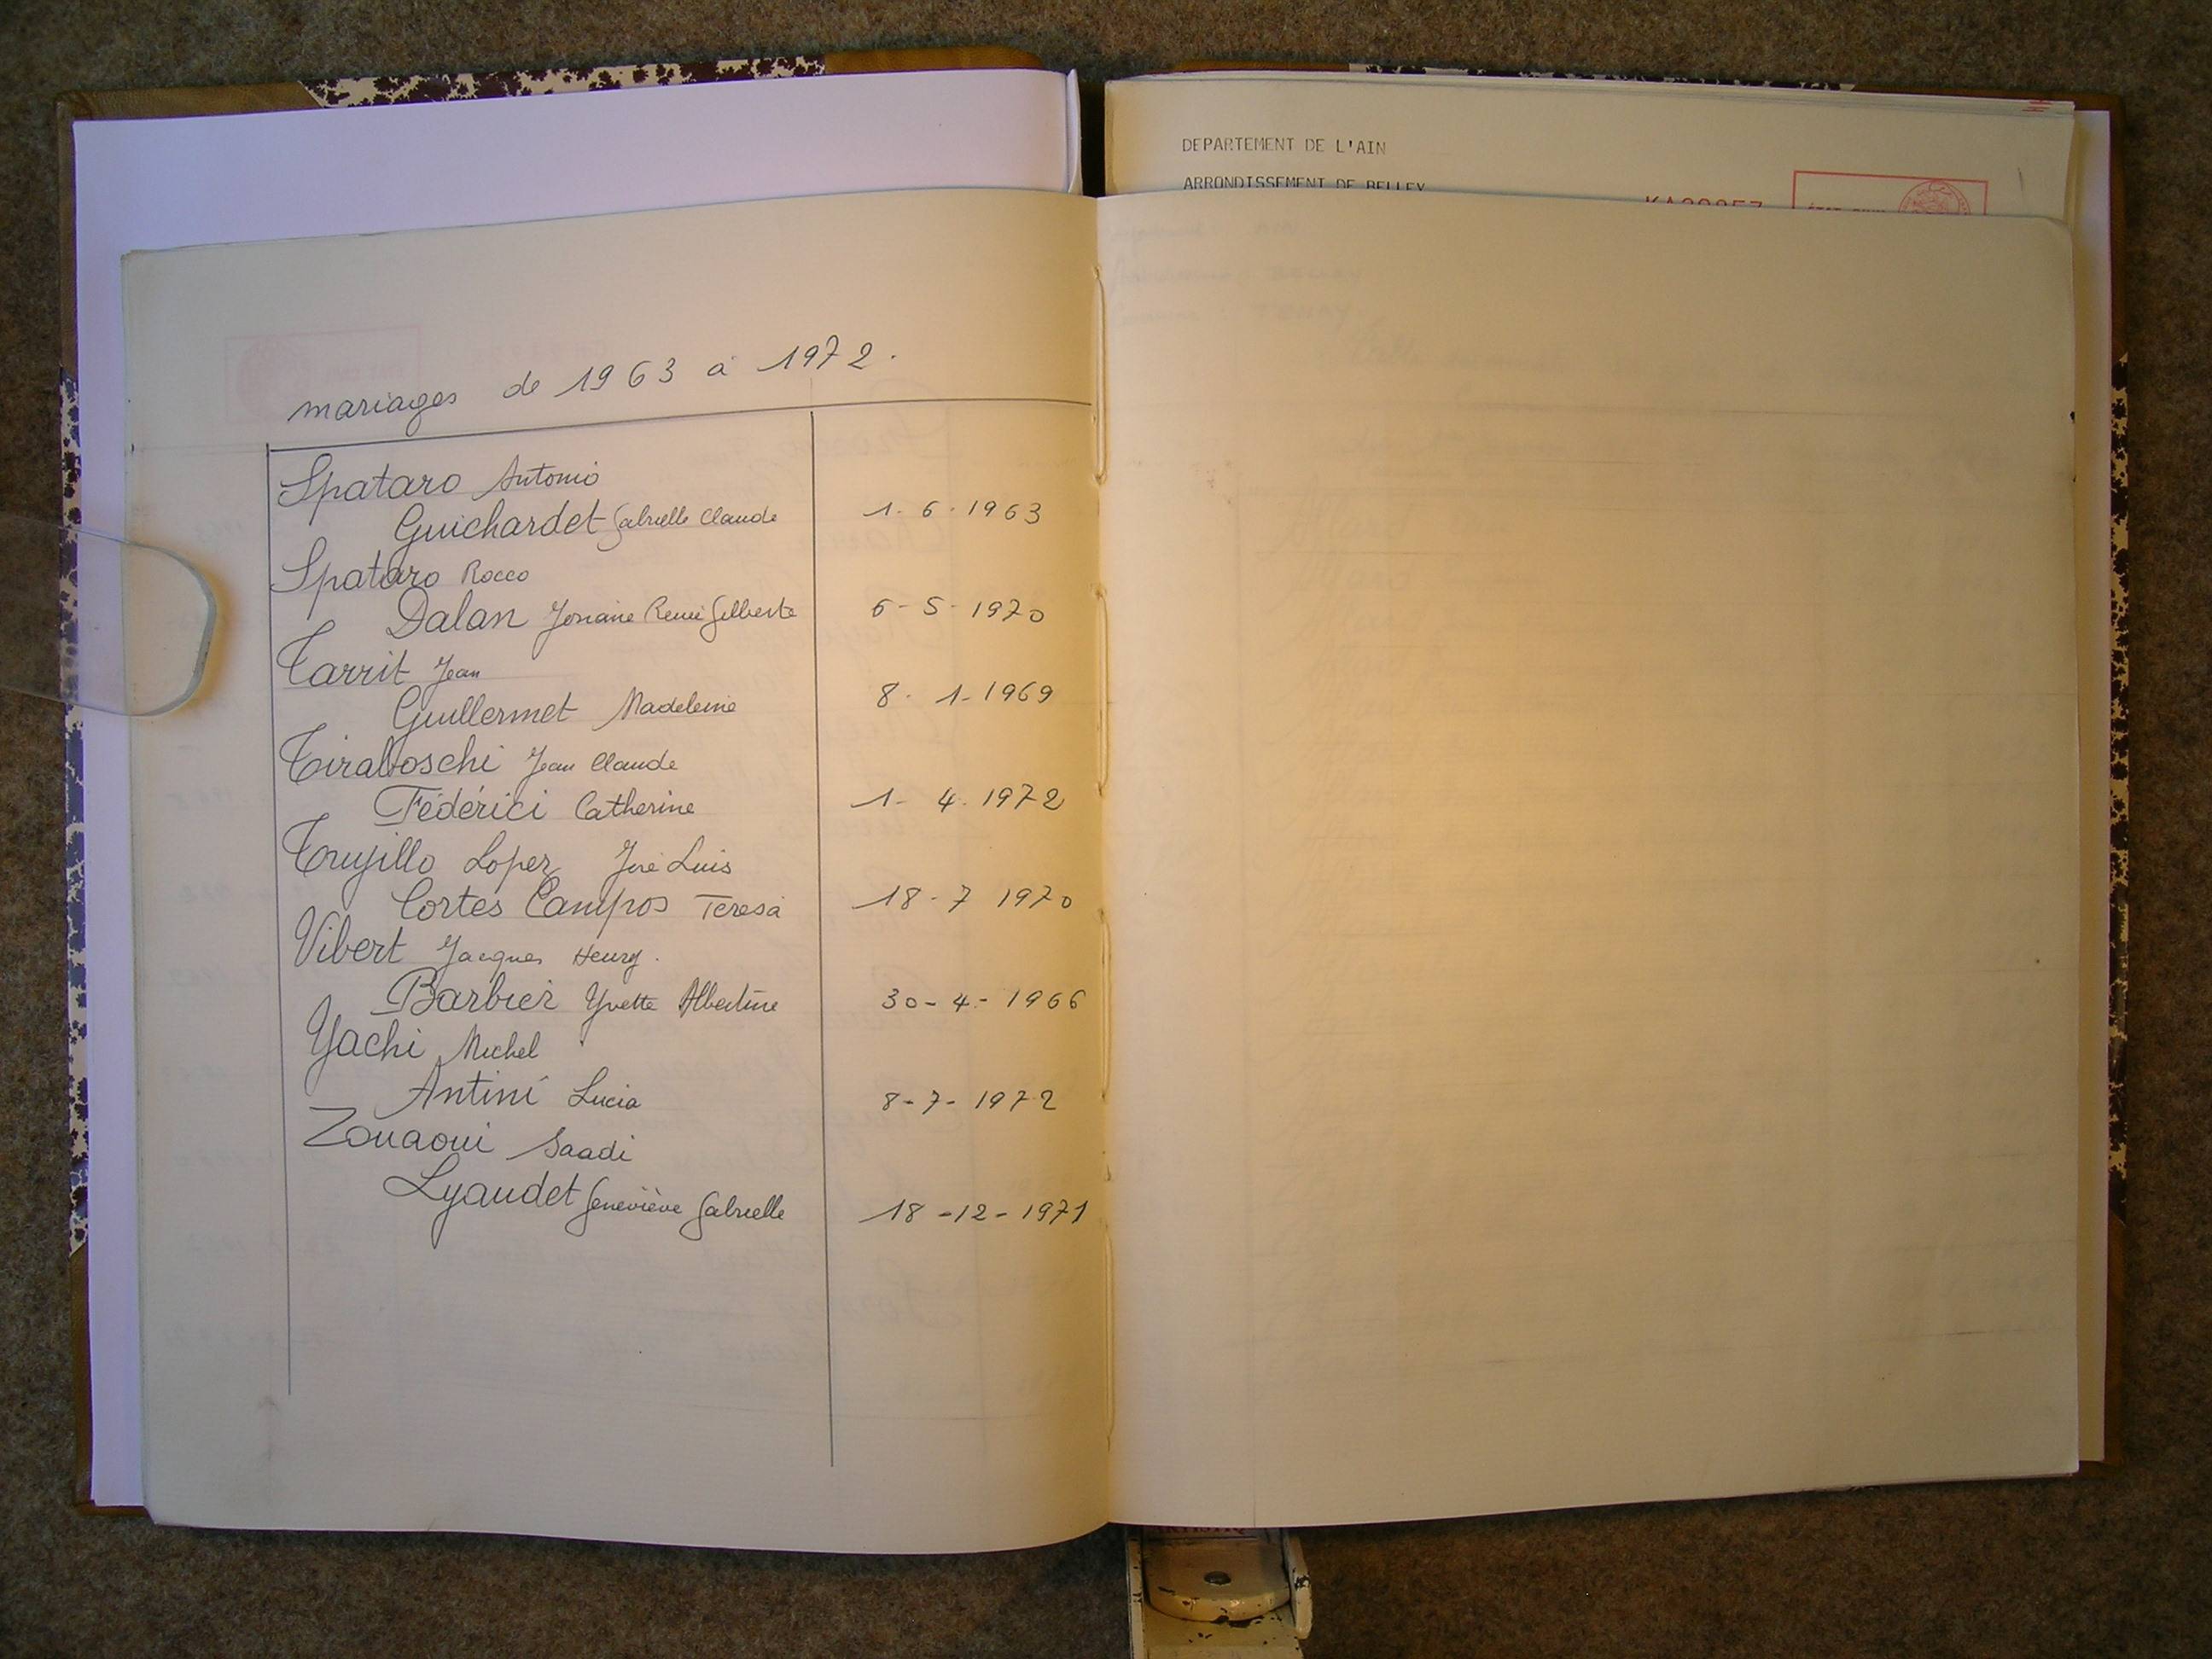 mariages de 1963 à 1972.
Spataro Antonio
Guichardet Gabrielle Claude 1.6.1963
Spataro Rocco
Dalan Josiane Renée Gilberte 6-5-1970
Tarrit Jean
Guillermet Madeleine 8.1-1969
Tiraboschi Jean Claude
Fédérici Catherine 1-4.1972
Trujillo Lopez José Luis
Cortés Campos Teresa 18-7 1970
Vibert Jacques Henry.
Barbier Yvette Albertine 30-4-1966
Yachi Michel
Antini Lucia 8-7-1972
Zouaoui Saadi
Lyaudet Geneviève Gabrielle 18-12-1971
DEPARTEMENT DE L'AIN
ARRONDISSEMENT DE BELLEY